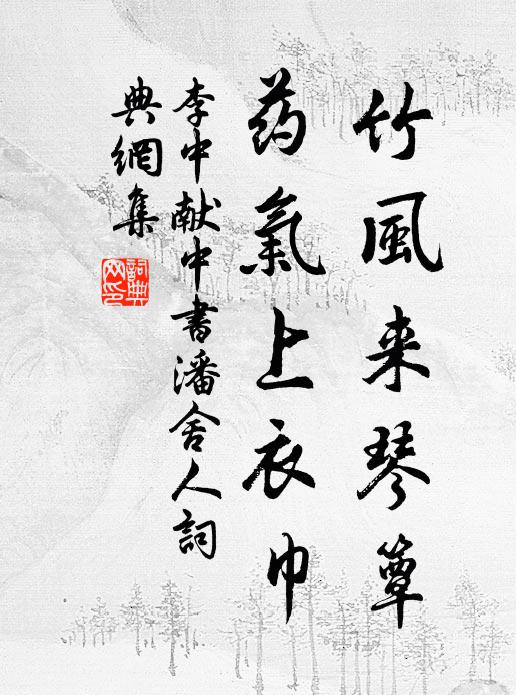 竹風来琴簟
药氣上衣巾
李中献中書潘舍人詞
典網集
詞典
网印